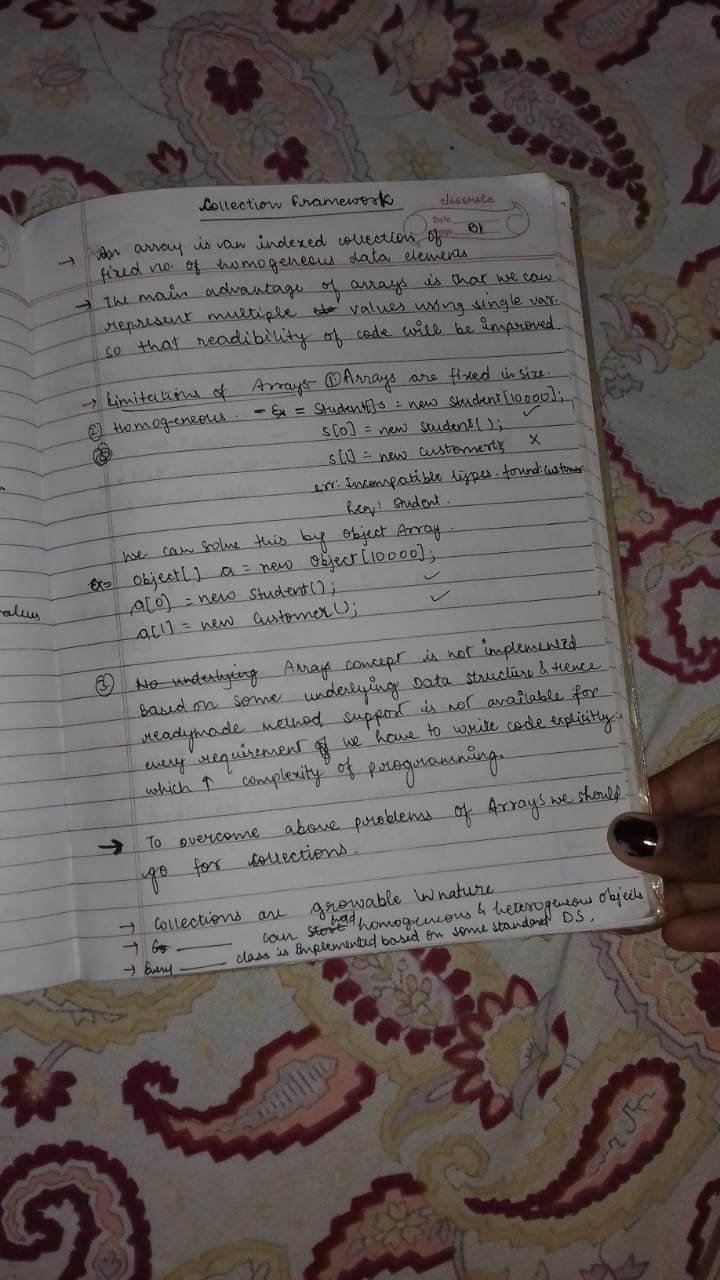 Collection Framework
classmate
Date
Page 01
→ An array is an indexed collection of
fixed no. of homogeneous data elements
→ The main advantage of arrays is that we can
represent multiple values using single var.
so that readibility of code will be improved.
→ Limitations of Arrays ① Arrays are fixed in size.
② Homogeneous. - Ex = Student[]s = new Student[10000];
s[0] = new Student(); ✓
s[1] = new Customer(); ×
err: Incompatible types. found: customer
Req: Student.
We can solve this by Object Array.
Ex= Object[] a = new Object[10000];
a[0] = new Student(); ✓
a[1] = new Customer(); ✓
alues
③ No underlying Arrays concept is not implemented
Based on some underlying Data structure & Hence
readymade method support is not available for
every requirement we have to write code explicitly.
which ↑ complexity of programming.
→ To overcome above problems of Arrays we should
go for Collections.
→ Collections are growable in nature
→ —— can store had homogeneous & heterogeneous Objects
→ Every —— class is Implemented based on some standard DS.